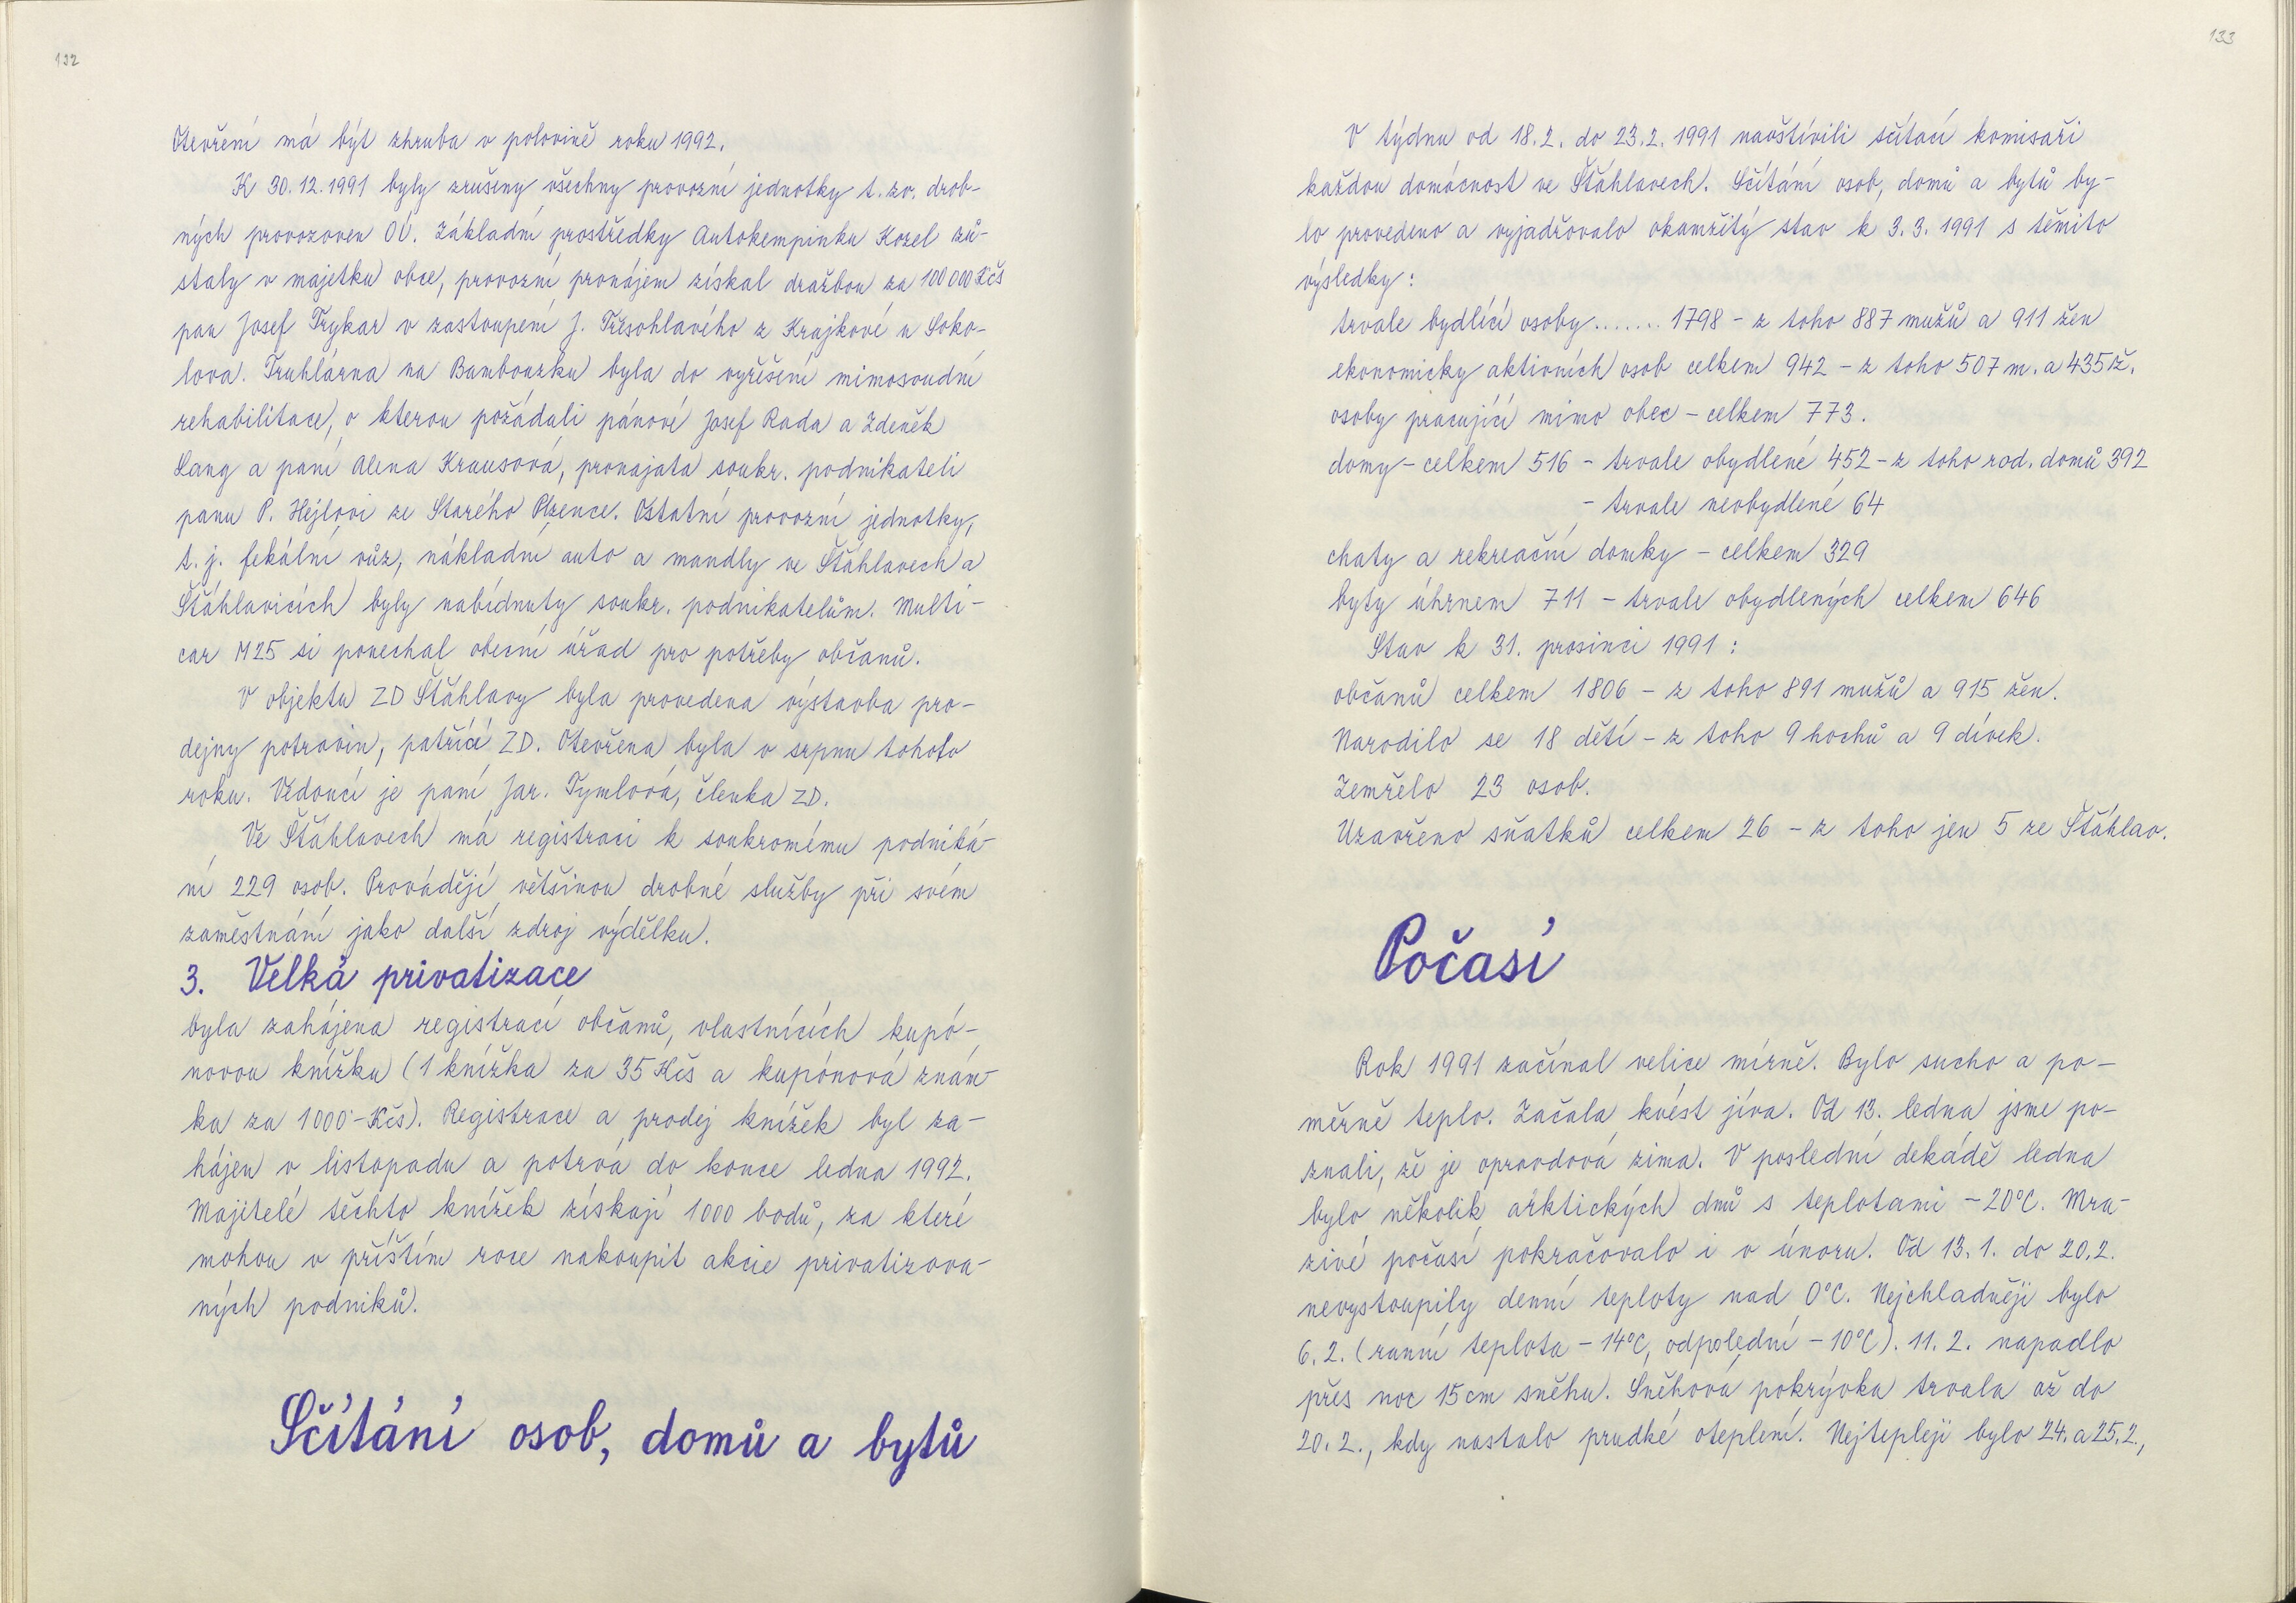 132
Otevření má být zhruba v polovině roku 1992.
K 30.12.1991 byly zrušeny všechny provozní jednotky t. zv. drob-
ných provozoven OÚ. Základní prostředky Autokempinku Kozel zů-
staly v majetku obce, provozní pronájem získal dražbou za 100 000 Kčs
pan Josef Trykar v zastoupení J. Třesohlavého z Krajkové u Soko-
lova. Truhlárna na Bambouzku byla do vyřešení mimosoudní
rehabilitace, o kterou požádali pánové Josef Rada a Zdeněk
Lang a paní Alena Krausová, pronajata soukr. podnikateli
panu P. Hejlovi ze Starého Plzence. Ostatní provozní jednotky,
t. j. fekální vůz, nákladní auto a mandly ve Šťáhlavech a
Šťáhlavicích byly nabídnuty soukr. podnikatelům. Multi-
car M25 si ponechal obecní úřad pro potřeby občanů.
V objektu ZD Šťáhlavy byla provedena výstavba pro-
dejny potravin, patřící ZD. Otevřena byla v srpnu tohoto
roku. Vedoucí je paní Jar. Tymlová, členka ZD.
Ve Šťáhlavech má registraci k soukromému podniká-
ní 229 osob. Provádějí většinou drobné služby při svém
zaměstnání jako další zdroj výdělku.
3. Velká privatizace
byla zahájena registrací občanů, vlastnících kupó-
novou knížku (1 knížka za 35 Kčs a kupónová znám-
ka za 1000,- Kčs). Registrace a prodej knížek byl za-
hájen v listopadu a potrvá do konce ledna 1992.
Majitelé těchto knížek získají 1000 bodů, za které
mohou v příštím roce nakoupit akcie privatizova-
ných podniků.
Sčítání osob, domů a bytů
133
V týdnu od 18.2. do 23.2. 1991 navštívili sčítací komisaři
každou domácnost ve Šťáhlavech. Sčítání osob, domů a bytů by-
lo provedeno a vyjadřovalo okamžitý stav k 3.3. 1991 s těmito
výsledky:
trvale bydlící osoby ....... 1798 - z toho 887 mužů a 911 žen
ekonomicky aktivních osob celkem 942 - z toho 507 m. a 435 ž.
osoby pracující mimo obec - celkem 773.
domy - celkem 516 - trvale obydlené 452 - z toho rod. domů 392
- trvale neobydlené 64
chaty a rekreační domky - celkem 329
byty úhrnem 711 - trvale obydlených celkem 646
Stav k 31. prosinci 1991:
občanů celkem 1806 - z toho 891 mužů a 915 žen.
Narodilo se 18 dětí - z toho 9 hochů a 9 dívek.
Zemřelo 23 osob.
Uzavřeno sňatků celkem 26 - z toho jen 5 ze Šťáhlav.
Počasí
Rok 1991 začínal velice mírně. Bylo sucho a po-
měrně teplo. Začala kvést jíva. Od 13. ledna jsme po-
znali, že je opravdová zima. V poslední dekádě ledna
bylo několik arktických dnů s teplotami -20°C. Mra-
zivé počasí pokračovalo i v únoru. Od 13.1. do 20.2.
nevystoupily denní teploty nad 0°C. Nejchladněji bylo
6.2. (ranní teplota -14°C, odpolední -10°C). 11.2. napadlo
přes noc 15 cm sněhu. Sněhová pokrývka trvala až do
20.2., kdy nastalo prudké oteplení. Nejtepleji bylo 24. a 25.2.,